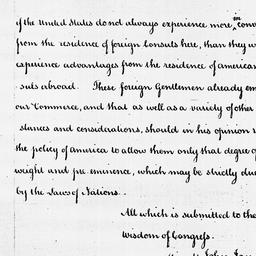 of the United States do not always experience more in conv
from the residence of foreign Consuls here, than they w
experience advantages from the residence of american
suls abroad. These foreign Gentlemen already em
our Commerce, and that as well as a variety of other
stances and considerations, should in his opinion r
the policy of america to allow them only that degree o
weight and pre. eminence, which may be strictly due
by the Laws of Nations.
All which is submitted to the
Wisdom of Congress.
John Jay